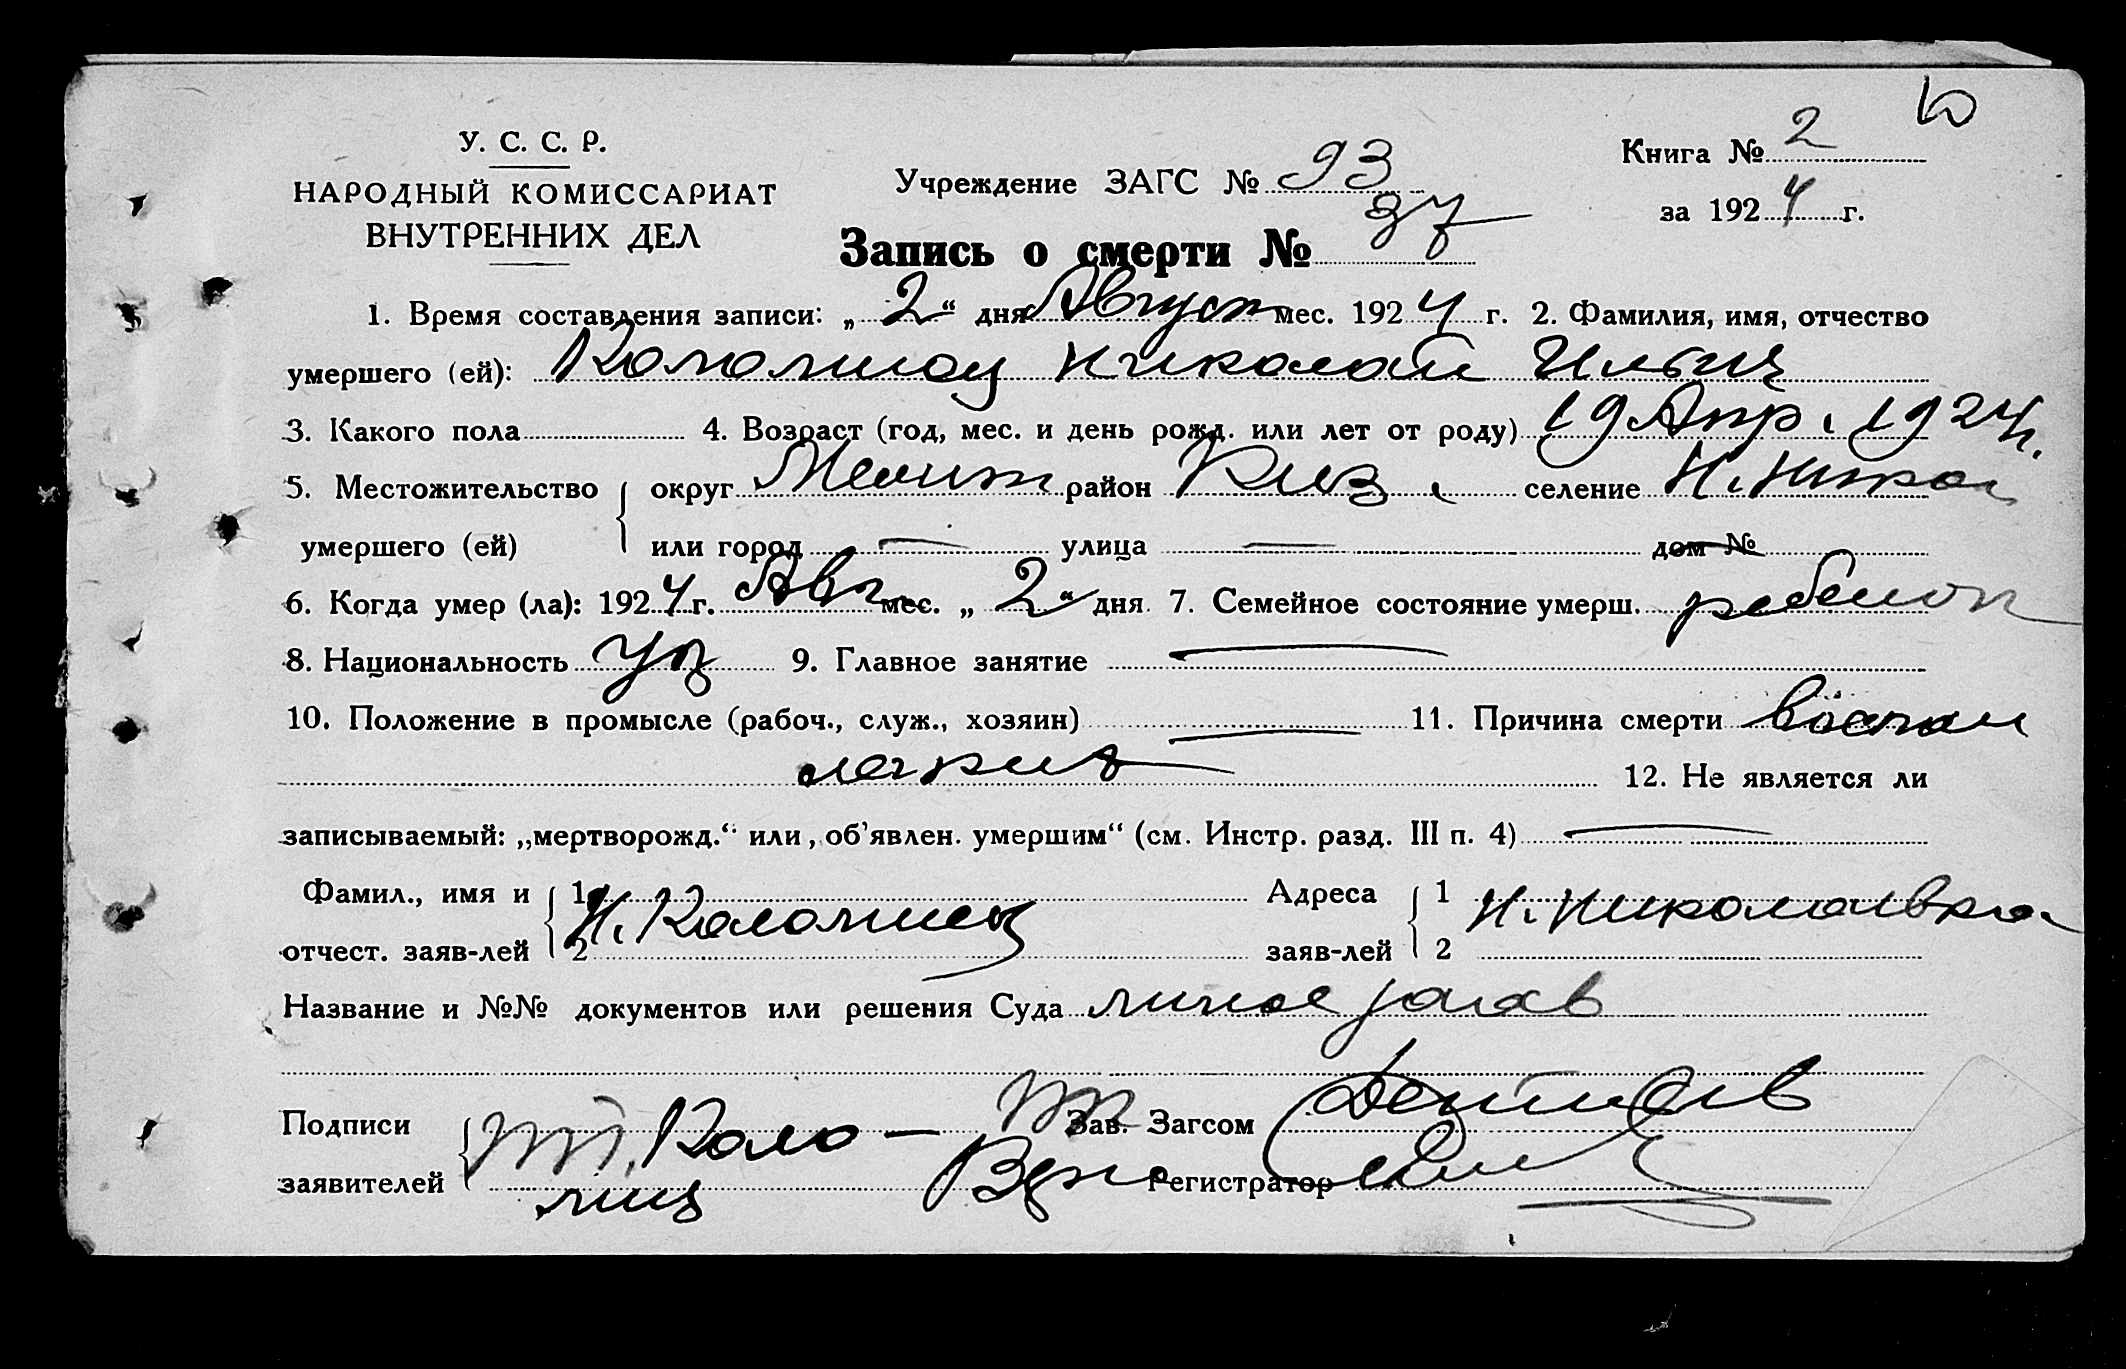 У. С. С. Р.
НАРОДНЫЙ КОМИССАРИАТ
ВНУТРЕННИХ ДЕЛ
Учреждение ЗАГС № 93
Книга № 2
за 1924 г.
Запись о смерти № 37
1. Время составления записи: „2“ дня Август мес. 1924 г. 2. Фамилия, имя, отчество
умершего (ей): Николай Ильич
3. Какого пола 4. Возраст (год, мес. и день рожд. или лет от роду) 19 Апр. 1924 г.
5. Местожительство округ Мелит район селение Н. Никол
умершего (ей) или город — улица — дом №
6. Когда умер (ла): 1924 г. Авг мес. „2“ дня 7. Семейное состояние умерш. ребенок
8. Национальность 9. Главное занятие —
10. Положение в промысле (рабоч., служ., хозяин) — 11. Причина смерти воспал
легких 12. Не является ли
записываемый: „мертворожд.“ или „об'явлен. умершим“ (см. Инстр. разд. III п. 4) —
Фамил., имя и 1 Адреса 1 Н. Николаевка
И. Коломиец
отчест. заяв-лей 2 заяв-лей 2
Название и №№ документов или решения Суда личное заяв
Подписи И. Коло- Зав. Загсом
заявителей миец Регистратор